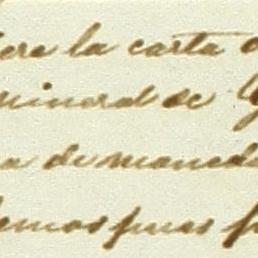 ere la carta
mineral de
a de moneda
emos pues